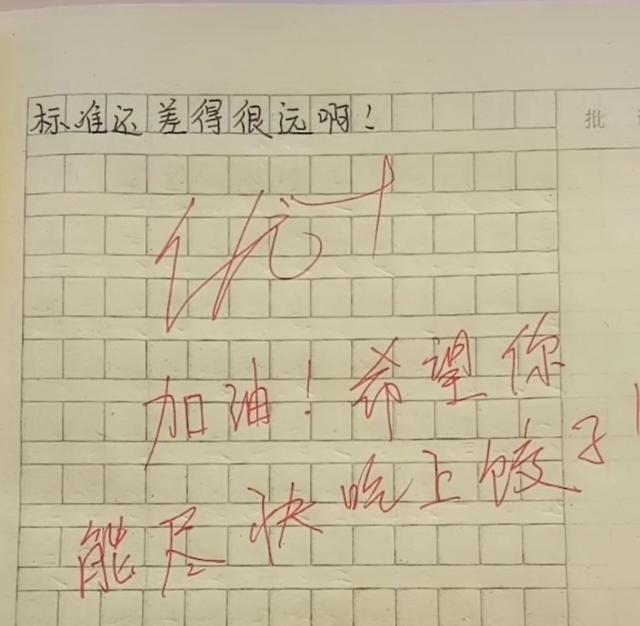 标准还差得很远啊!
批
优+
加油!希望你
能尽快吃上饺子!